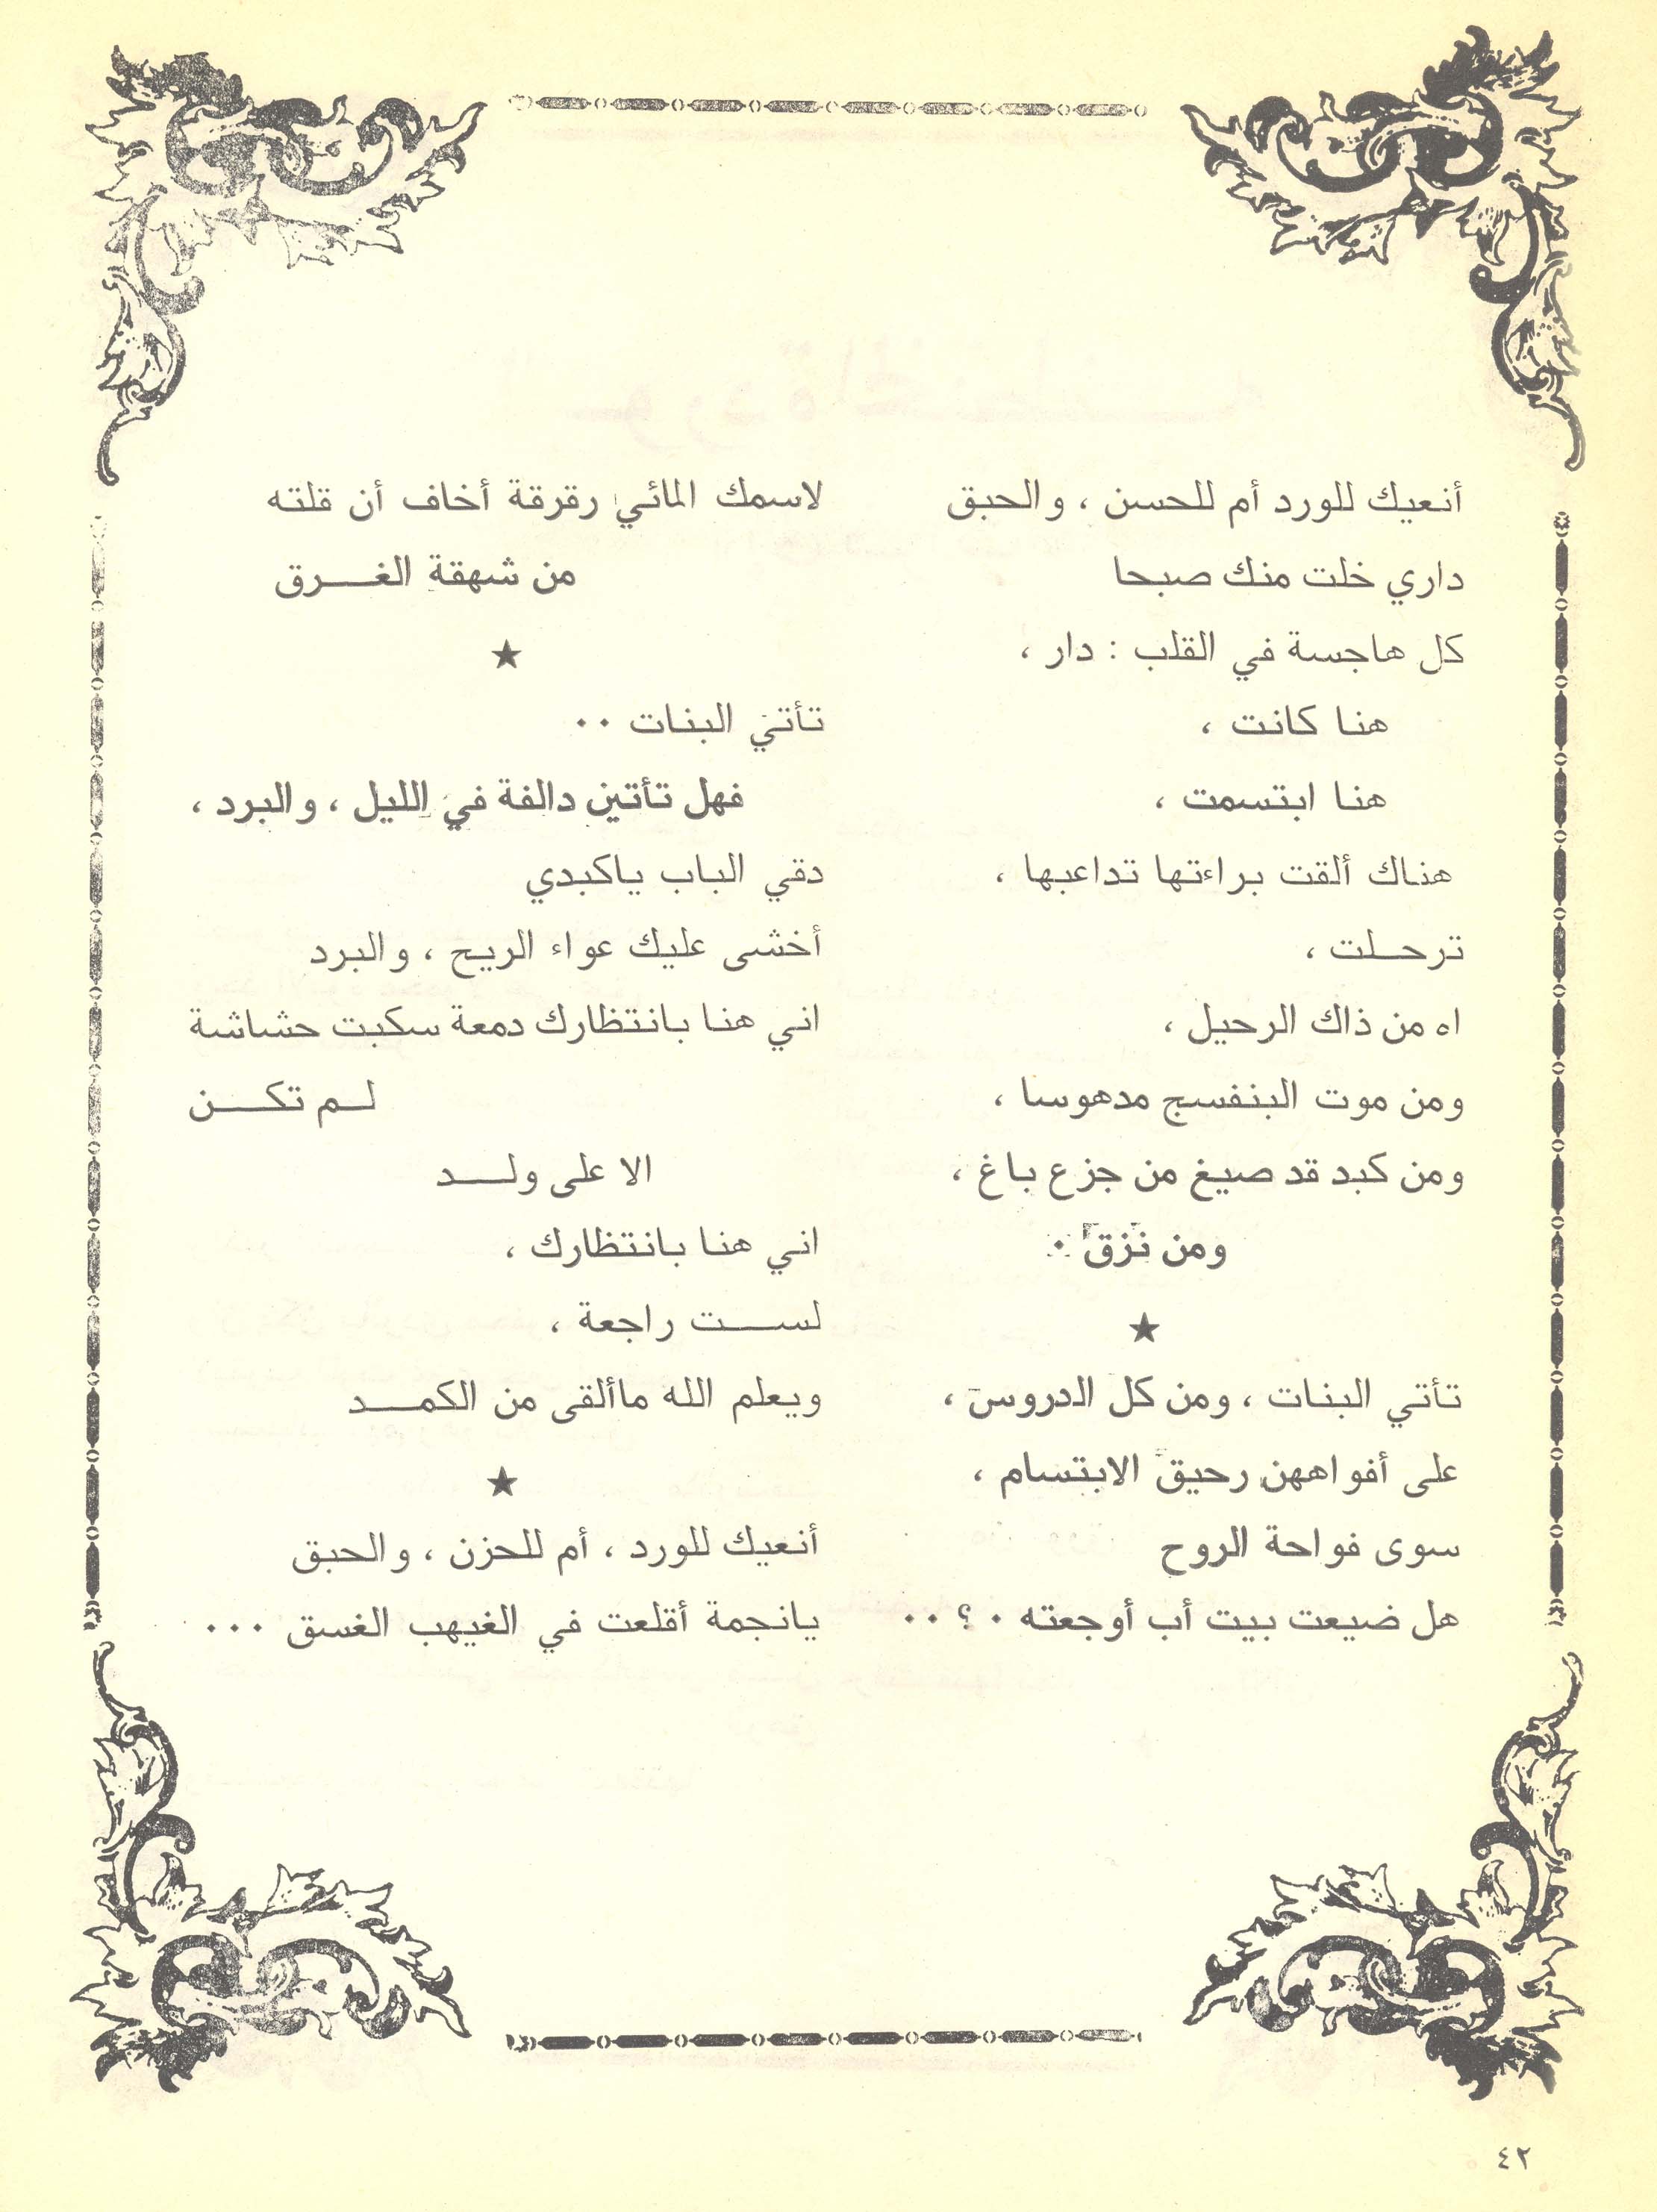 أنعيك للورد أم للحسن ، والحبق
داري خلت منك صبحا
كل هاجسة في القلب : دار ،
هنا كانت ،
هنا ابتسمت ،
هناك ألقت براءتها تداعبها ،
ترحـلت ،
اه من ذاك الرحيل ،
ومن موت البنفسج مدهوسا ،
ومن كبد قد صيغ من جزع باغ ،
ومن نزق ٠
★
تأتي البنات ، ومن كل الدروس ،
على أفواههن رحيق الابتسام ،
سوى فواحة الروح
هل ضيعت بيت أب أوجعته ٠ ؟ ٠ ٠
لاسمك المائي رقرقة أخاف أن قلته
من شهقة الغـــرق
★
تأتي البنات ٠٠
فهل تأتين دالفة في الليل ، والبرد ،
دقي الباب ياكبدي
أخشى عليك عواء الريح ، والبرد
اني هنا بانتظارك دمعة سكبت حشاشة
لــم تكــــن
الا على ولـــد
اني هنا بانتظارك ،
لســـت راجعة ،
ويعلم الله ماألقى من الكمـــد
★
أنعيك للورد ، أم للحزن ، والحبق
يانجمة أقلعت في الغيهب الغسق ٠٠٠
٤٢